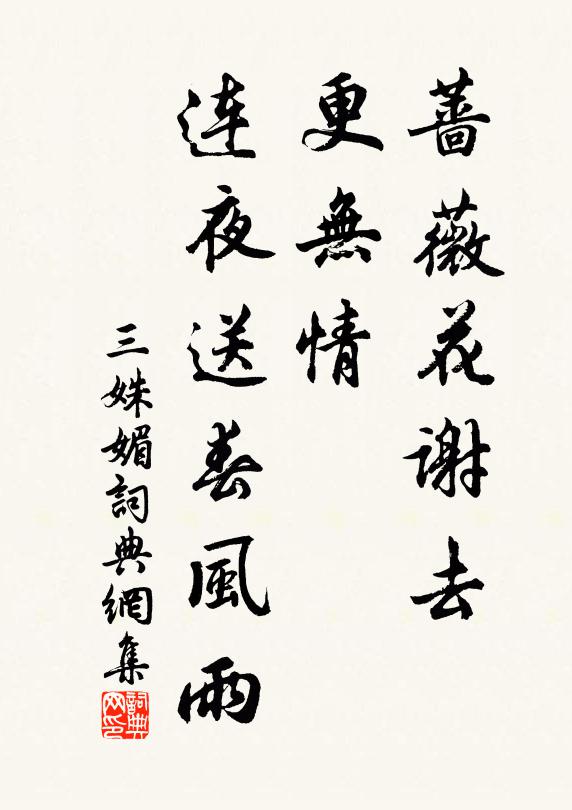 蔷薇花謝去
更無情
连夜送春風雨
三姝媚詞典網集
詞典网印